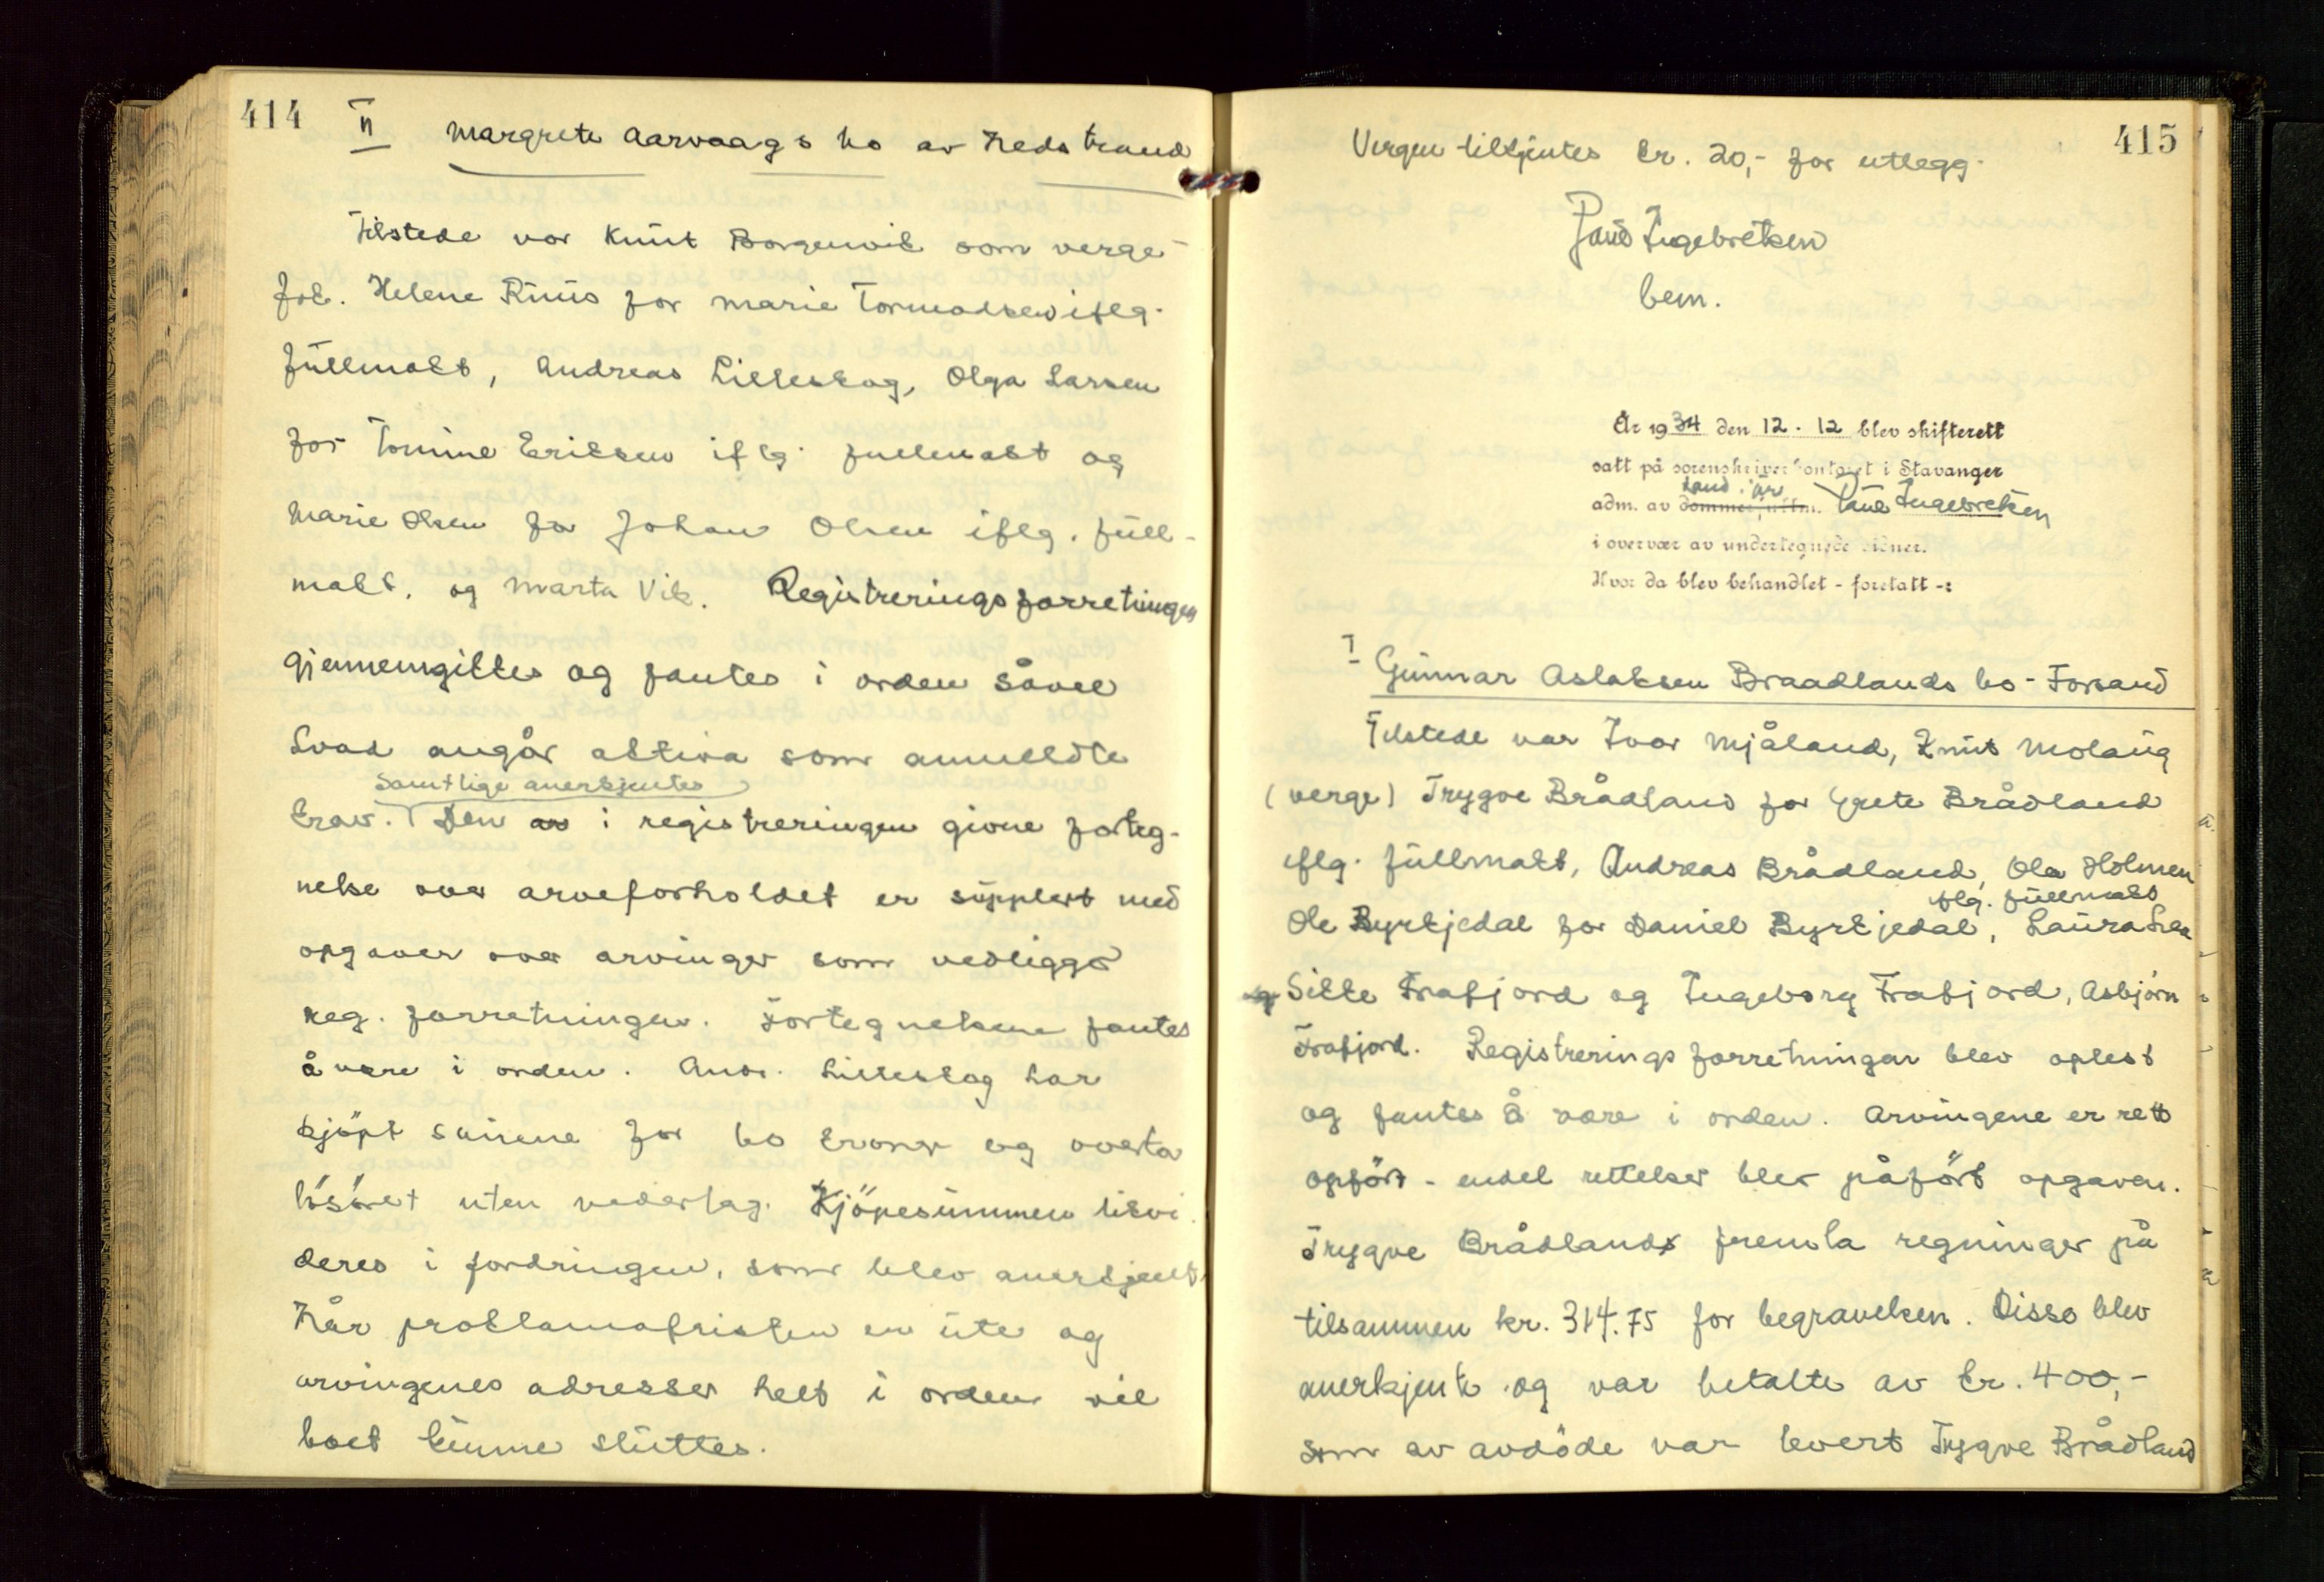 414
II Margrete Aarvaags bo av Nedstrand
Tilstede var Knut Borgenvik som verge
frk. Helene Ruus for Marie Tormodsen iflg.
fullmakt, Andreas Lilleskog, Olga Larsen
for Tomine Eriksen iflg. fullmakt og
Marie Olsen for Johan Olsen iflg. full-
makt, og Marta Vik. Registreringsforretningen
gjennemgikkes og fantes i orden såvel
hvad angår aktiva som anmeldte
Samtlige anerkjentes
krav. Den av i registreringen givne forteg-
nelse over arveforholdet er supplert med
opgaver over arvinger som vedligger
reg. forretningen. Fortegnelsene fantes
å være i orden. Andr. Lilleskog har
kjöpt sauene for 60 kroner og overta
lösöret uten vederlag. Kjöpesummen likvi-
deres i fordringen, som blev anerkjent.
Når proklamafristen er ute og
arvingenes adresser helt i orden vil
boet kunne sluttes.
415
Vergen tilkjentes kr. 20,- for utlegg.
Paul Ingebretsen
bem.
År 1934 den 12. 12 blev skifterett
satt på sorenskriverkontoret i Stavanger
adm. av dommerfullm. Paul Ingebretsen
i overvær av undertegnede vidner.
Hvor da blev behandlet - foretatt -:
I Gunnar Aslaksen Braadlands bo - Forsand
Tilstede var Ivar Mjåland, Knut Molaug
(verge) Trygve Brådland for Grete Brådland
iflg. fullmakt, Andreas Brådland, Ola Holmen
iflg. fullmakt
Ole Byrkjedal for Daniel Byrkjedal, Laura Lea
og Sille Frafjord og Ingeborg Frafjord, Asbjörn
Frafjord. Registreringsforretningen blev oplest
og fantes å være i orden. Arvingene er rett
opfört - endel rettelser blev påfört opgaven.
Trygve Brådland fremla regninger på
tilsammen kr. 314.75 for begravelsen. Disse blev
anerkjente og var betalte av kr. 400,-
som av avdöde var levert Trygve Brådland